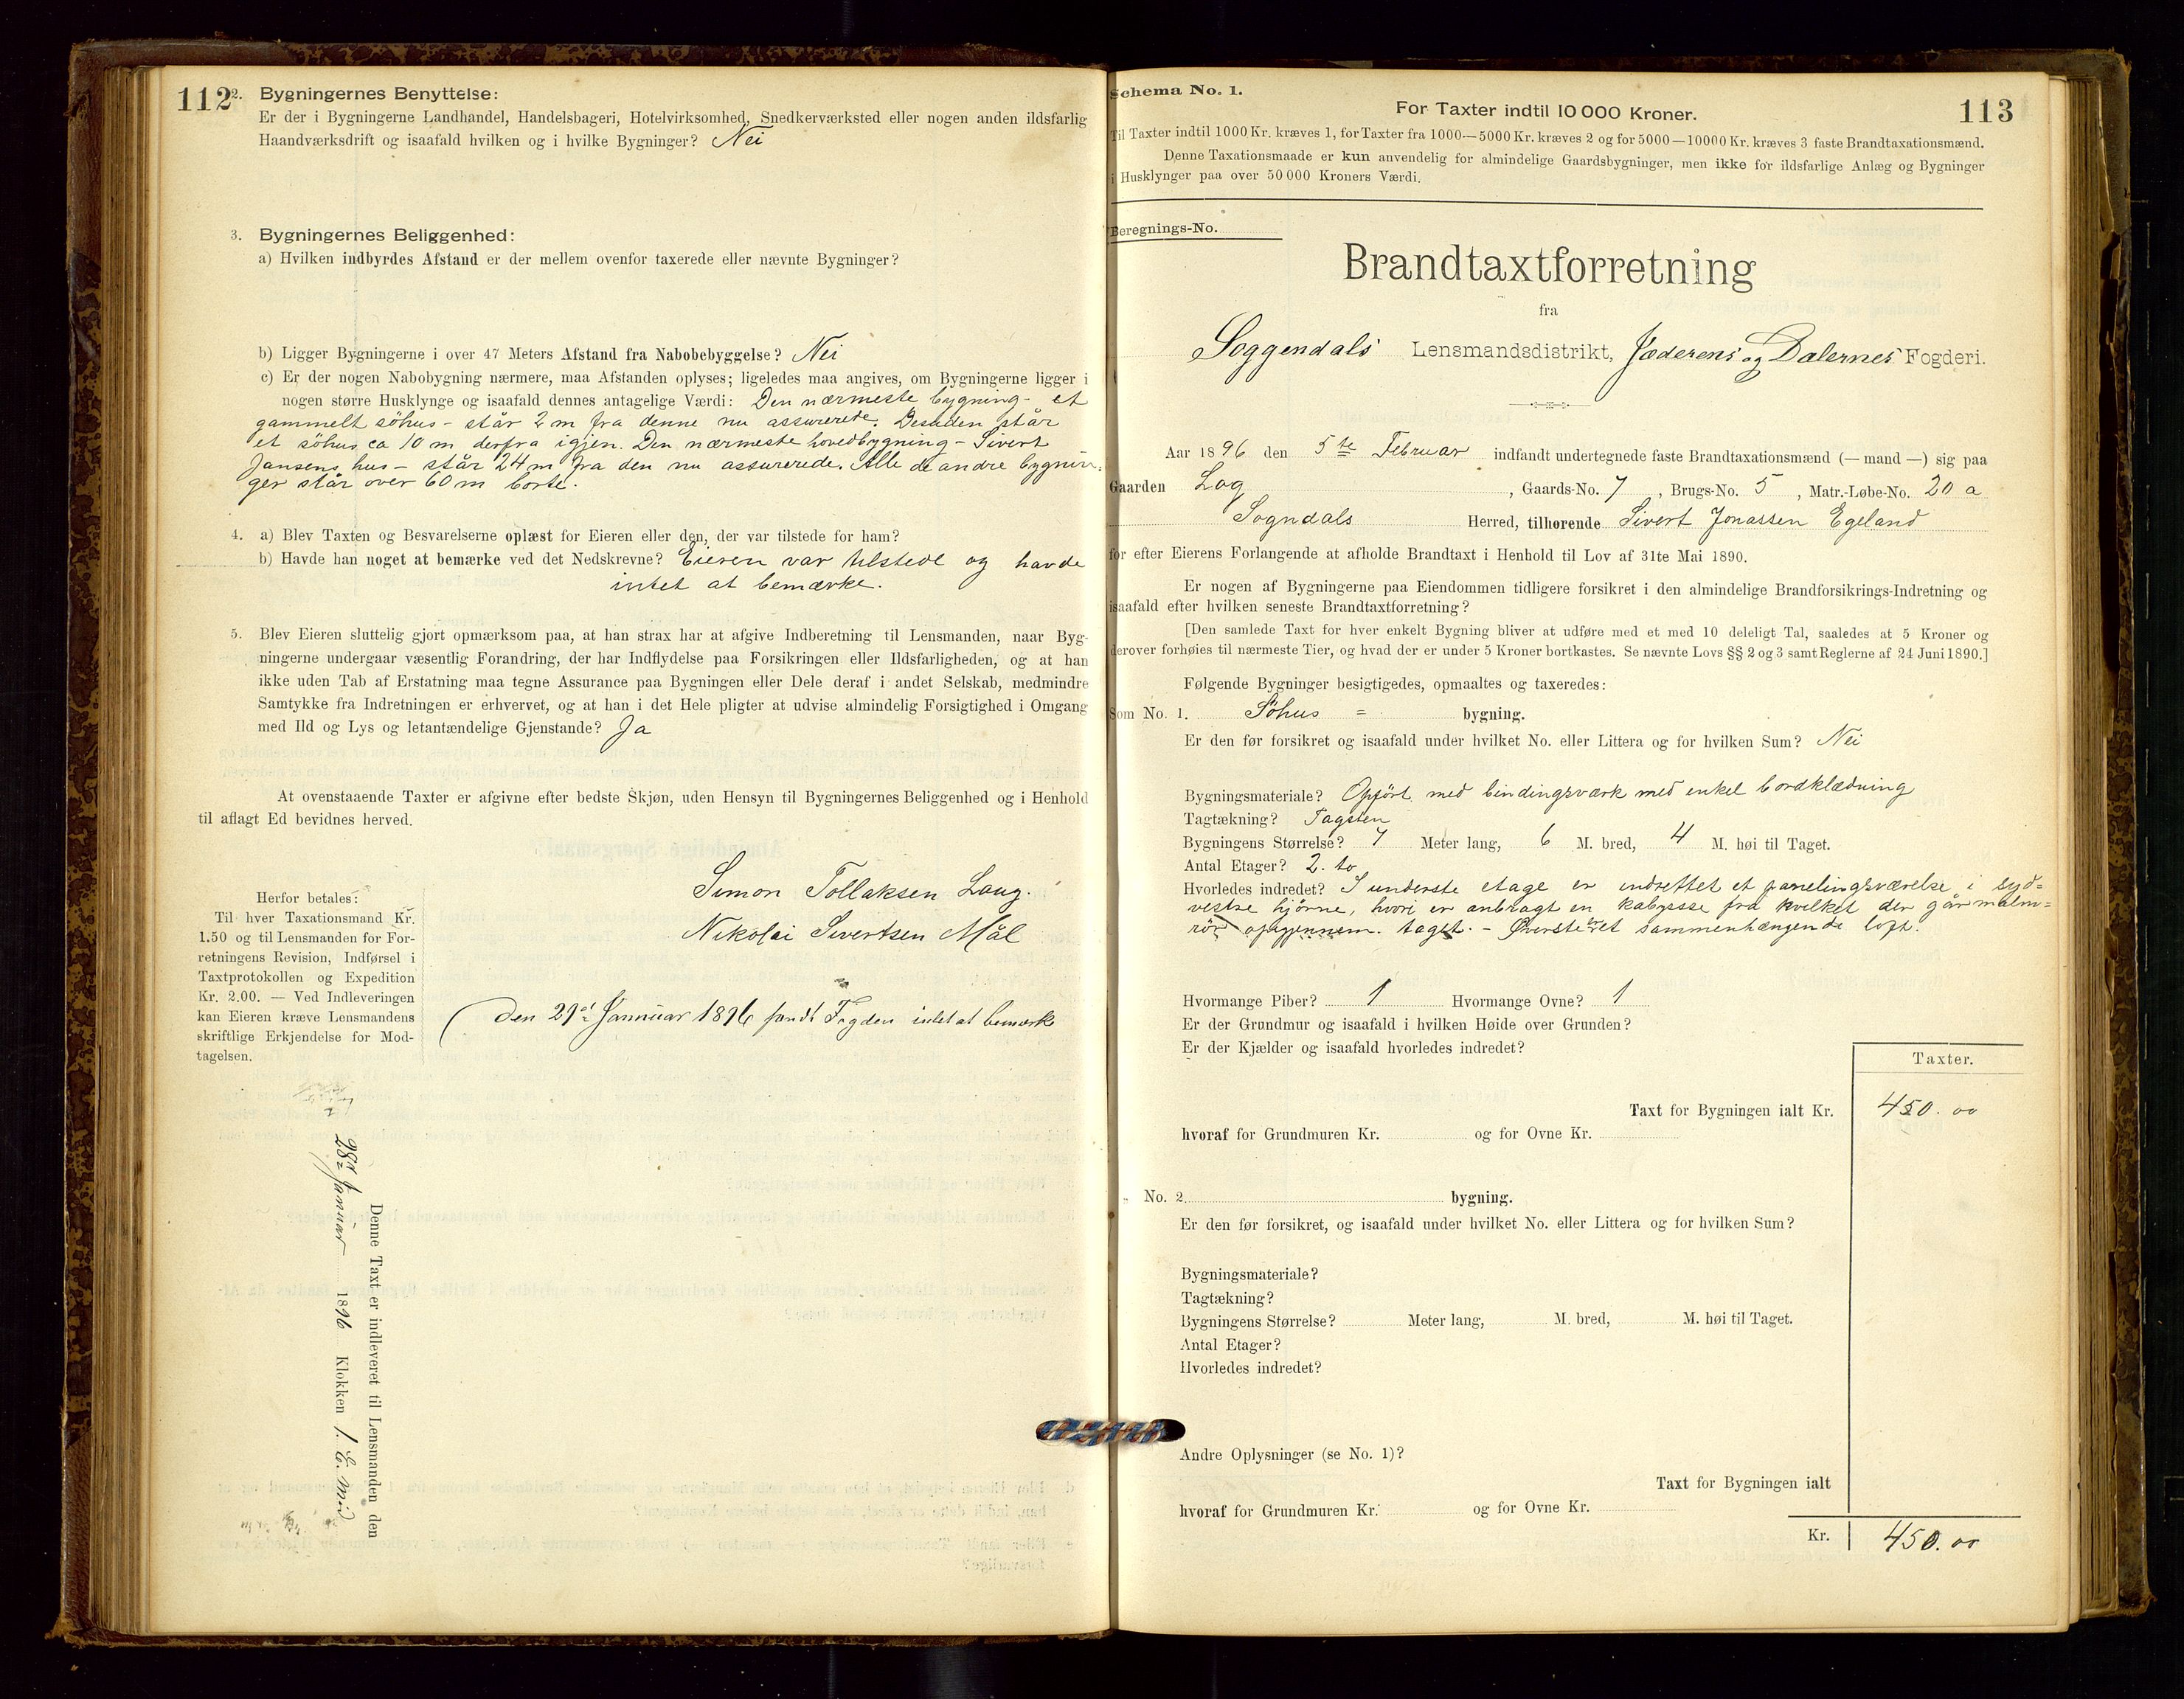 112
2. Bygningernes Benyttelse:
Er der i Bygningerne Landhandel, Handelsbageri, Hotelvirksomhed, Snedkerværksted eller nogen anden ildsfarlig
Haandværksdrift og isaafald hvilken og i hvilke Bygninger? Nei
3. Bygningernes Beliggenhed:
a) Hvilken indbyrdes Afstand er der mellem ovenfor taxerede eller nævnte Bygninger?
b) Ligger Bygningerne i over 47 Meters Afstand fra Nabobebyggelse? Nei
c) Er der nogen Nabobygning nærmere, maa Afstanden oplyses; ligeledes maa angives, om Bygningerne ligger i
nogen større Husklynge og isaafald dennes antagelige Værdi: Den nærmeste bygning - et
gammelt söhus - står 2 m fra denne nu assurerede. Desuden står
et söhus ca 10 m derfra igjen. Den nærmeste hovedbygning - Sivert
Jansens hus - står 24 m fra den nu assurerede. Alle de andre bygnin-
ger står over 60 m borte.
4. a) Blev Taxten og Besvarelserne oplæst for Eieren eller den, der var tilstede for ham?
b) Havde han noget at bemærke ved det Nedskrevne? Eieren var tilstede og havde
intet at bemærke.
5. Blev Eieren sluttelig gjort opmærksom paa, at han strax har at afgive Indberetning til Lensmanden, naar Byg-
ningerne undergaar væsentlig Forandring, der har Indflydelse paa Forsikringen eller Ildsfarligheden, og at han
ikke uden Tab af Erstatning maa tegne Assurance paa Bygningen eller Dele deraf i andet Selskab, medmindre
Samtykke fra Indretningen er erhvervet, og at han i det Hele pligter at udvise almindelig Forsigtighed i Omgang
med Ild og Lys og letantændelige Gjenstande? Ja
At ovenstaaende Taxter er afgivne efter bedste Skjøn, uden Hensyn til Bygningernes Beliggenhed og i Henhold
til aflagt Ed bevidnes herved.
Simon Tollaksen Laug.
Nikolai Sivertsen Mål
Herfor betales:
Til hver Taxationsmand Kr.
1.50 og til Lensmanden for For-
retningens Revision, Indførsel i
Taxtprotokollen og Expedition
Kr. 2.00. — Ved Indleveringen
kan Eieren kræve Lensmandens
skriftlige Erkjendelse for Mod-
tagelsen.
Den 29de Januar 1896 fandt Fogden intet at bemærke
Denne Taxt er indleveret til Lensmanden den
28de Januar 1896 Klokken 1. E. Mid
Schema No. 1.
113
For Taxter indtil 10 000 Kroner.
Til Taxter indtil 1000 Kr. kræves 1, for Taxter fra 1000—5000 Kr. kræves 2 og for 5000—10000 Kr. kræves 3 faste Brandtaxationsmænd.
Denne Taxationsmaade er kun anvendelig for almindelige Gaardsbygninger, men ikke for ildsfarlige Anlæg og Bygninger
i Husklynger paa over 50 000 Kroners Værdi.
Beregnings-No.
Brandtaxtforretning
fra
Soggendals Lensmandsdistrikt, Jæderens og Dalernes Fogderi.
Aar 1896 den 5te Februar indfandt undertegnede faste Brandtaxationsmænd (— mand —) sig paa
Gaarden Log, Gaards-No. 7, Brugs-No. 5, Matr.-Løbe-No. 20 a
Sogndals Herred, tilhørende Sivert Jonassen Egeland
for efter Eierens Forlangende at afholde Brandtaxt i Henhold til Lov af 31te Mai 1890.
Er nogen af Bygningerne paa Eiendommen tidligere forsikret i den almindelige Brandforsikrings-Indretning og
isaafald efter hvilken seneste Brandtaxtforretning?
[Den samlede Taxt for hver enkelt Bygning bliver at udføre med et med 10 deleligt Tal, saaledes at 5 Kroner og
derover forhøies til nærmeste Tier, og hvad der er under 5 Kroner bortkastes. Se nævnte Lovs §§ 2 og 3 samt Reglerne af 24 Juni 1890.]
Følgende Bygninger besigtigedes, opmaaltes og taxeredes:
Som No. 1. Söhus = bygning.
Er den før forsikret og isaafald under hvilket No. eller Littera og for hvilken Sum? Nei
Bygningsmateriale? Opfört med bindingsværk med enkel bordklædning
Tagtækning? Tagsten
Bygningens Størrelse? 7 Meter lang, 6 M. bred, 4 M. høi til Taget.
Antal Etager? 2. to
Hvorledes indredet? I underste etage er indrettet et panelingsværelse i syd=
vestre hjörne, hvori er anbragt en kabysse fra hvilket der går malm=
rör opigjennem taget. - Øverste er et sammenhængende loft.
Hvormange Piber? 1 Hvormange Ovne? 1
Er der Grundmur og isaafald i hvilken Høide over Grunden?
Er der Kjælder og isaafald hvorledes indredet?
Taxter.
Taxt for Bygningen ialt Kr. 450. 00
hvoraf for Grundmuren Kr. og for Ovne Kr.
No. 2. bygning.
Er den før forsikret, og isaafald under hvilket No. eller Littera og for hvilken Sum?
Bygningsmateriale?
Tagtækning?
Bygningens Størrelse? Meter lang, M. bred, M. høi til Taget.
Antal Etager?
Hvorledes indredet?
Andre Oplysninger (se No. 1)?
Taxt for Bygningen ialt
hvoraf for Grundmuren Kr. og for Ovne Kr.
Kr. 450. 00